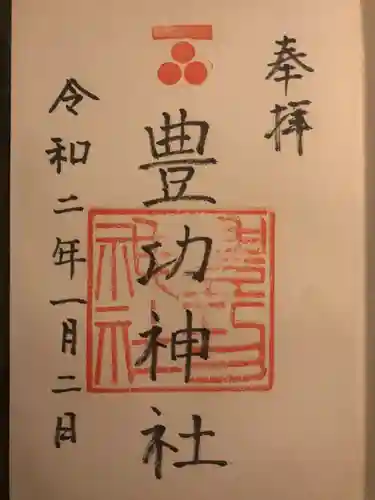 奉拝
豊功神社
令和二年一月二日